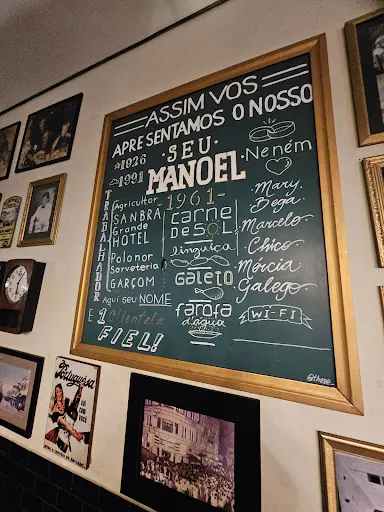 ASSIM VOS
APRESENTAMOS O NOSSO
SEU
MANOEL
☆1926
✝1991
TRABALHADOR
Agricultor
SANBRA
Grande
HOTEL
Polonor
Sorveteria
GARÇOM
Aqui seu NOME
E 1 Clientela
FIEL!
1961-
carne
DE SOL
linguiça
GALETO
farofa
d'água
Neném
Mary
Bega
Marcelo
Chico
Márcia
Galego
WI-FI
Portuguêsa